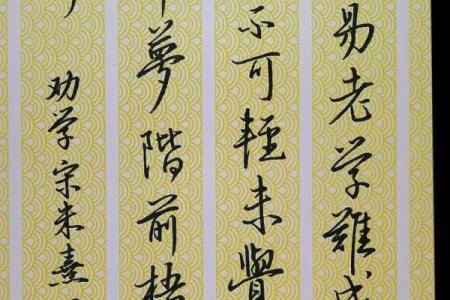 易老学難成
不可輕未覺
夢階前梧
劝学宋朱熹